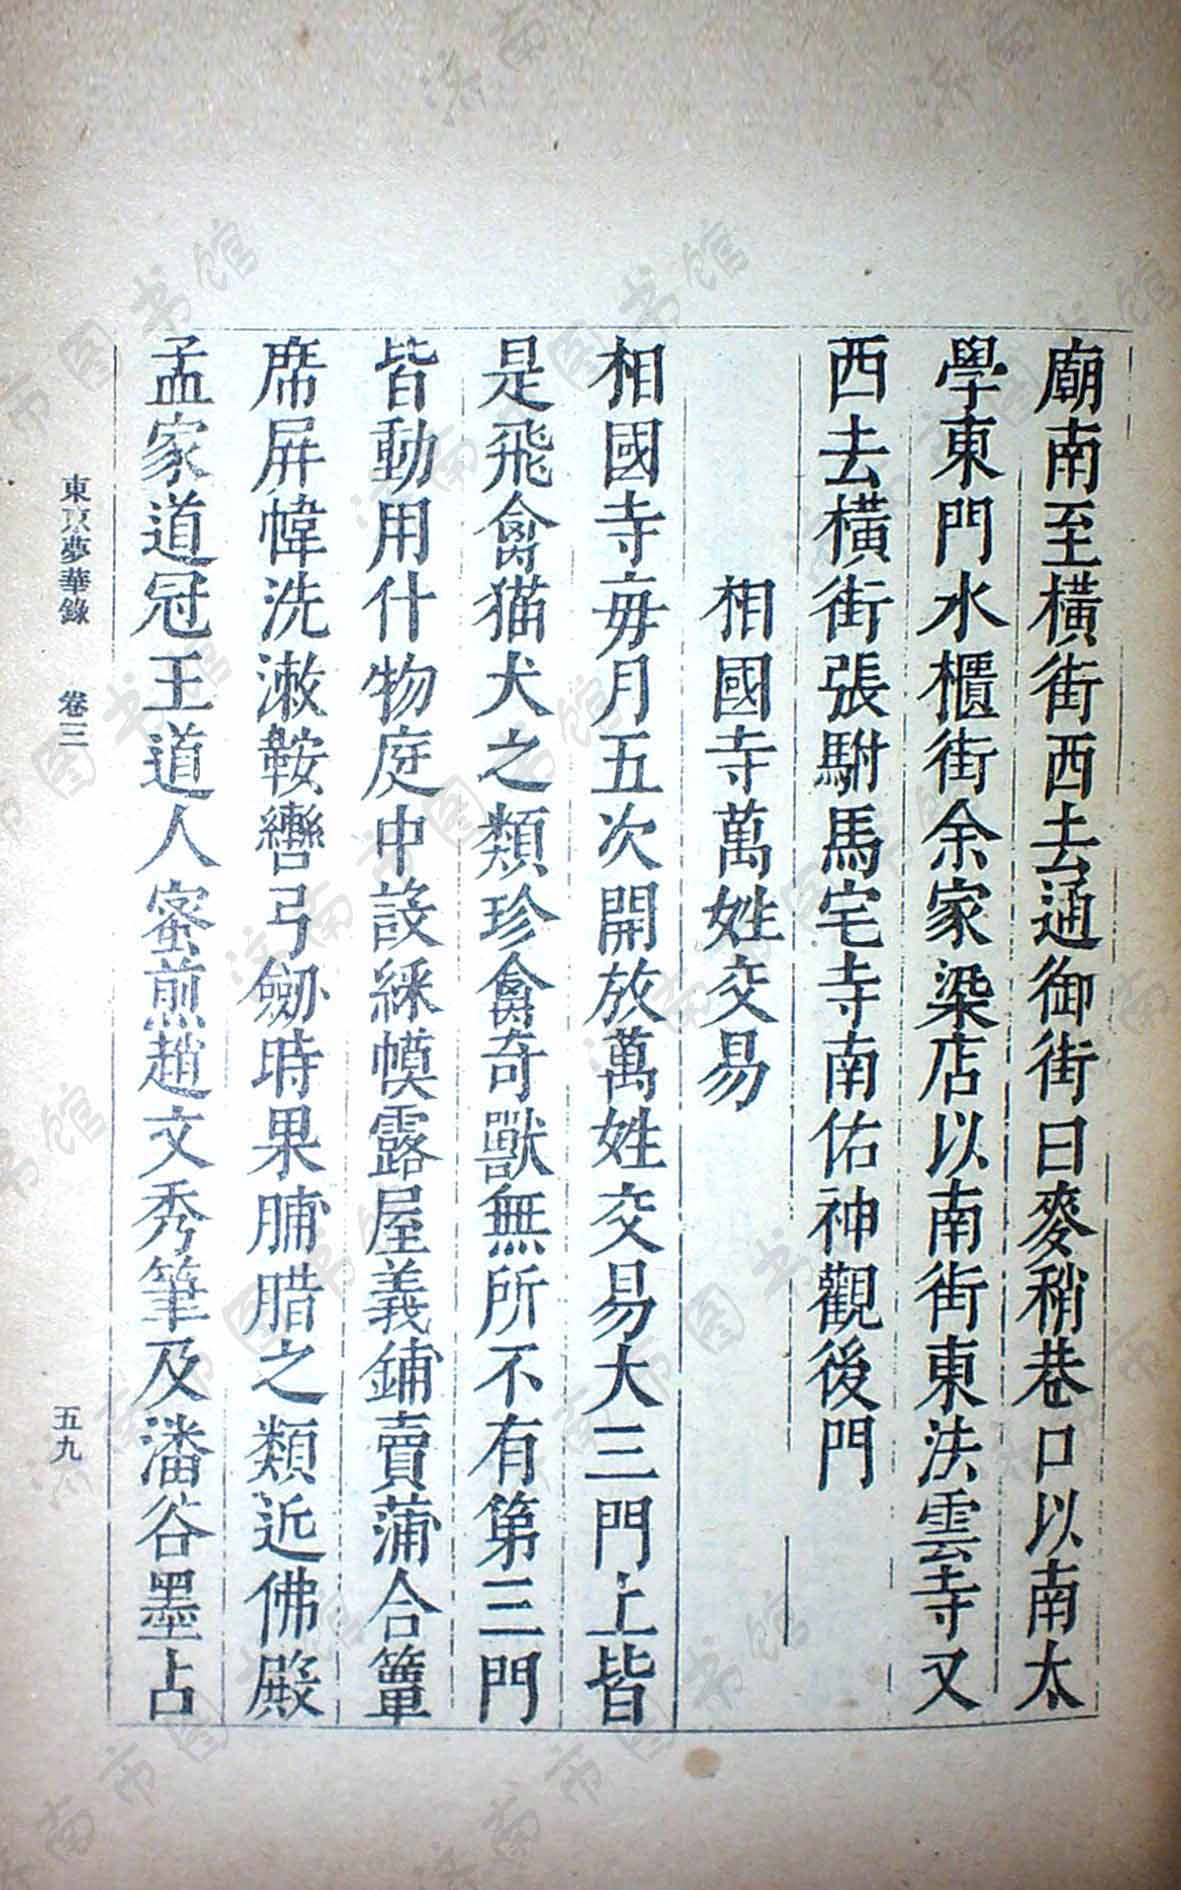 廟南至橫街西去通御街曰麥稍巷口以南太
學東門水櫃街余家染店以南街東法雲寺又
西去橫街張駙馬宅寺南佑神觀後門
相國寺萬姓交易
相國寺每月五次開放萬姓交易大三門上皆
是飛禽猫犬之類珍禽奇獸無所不有第三門
皆動用什物庭中設綵幙露屋義鋪賣蒲合簟
席屏幃洗漱鞍轡弓劒時果脯腊之類近佛殿
孟家道冠王道人蜜煎趙文秀筆及潘谷墨占
東京夢華錄 卷三 五九
济南市图书馆